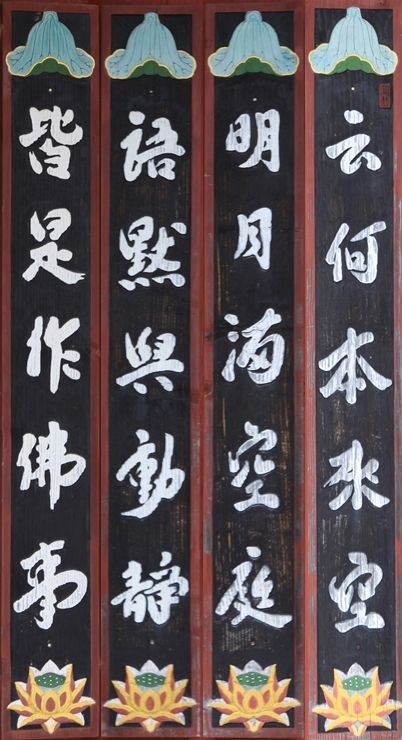 云何本來空
明月滿空庭
語默與動靜
皆是作佛事